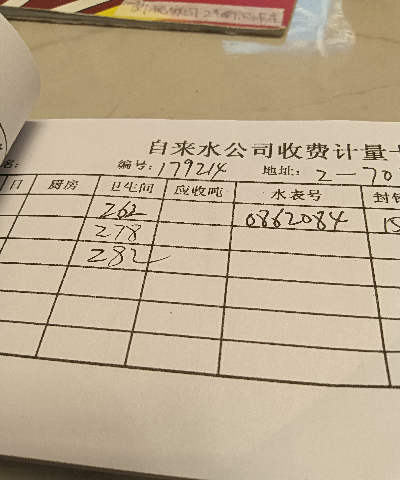 自来水公司收费计量
名: 编号: 179214 地址: 2-70
日 厨房 卫生间 应收吨 水表号 封
262 0862084
278
282